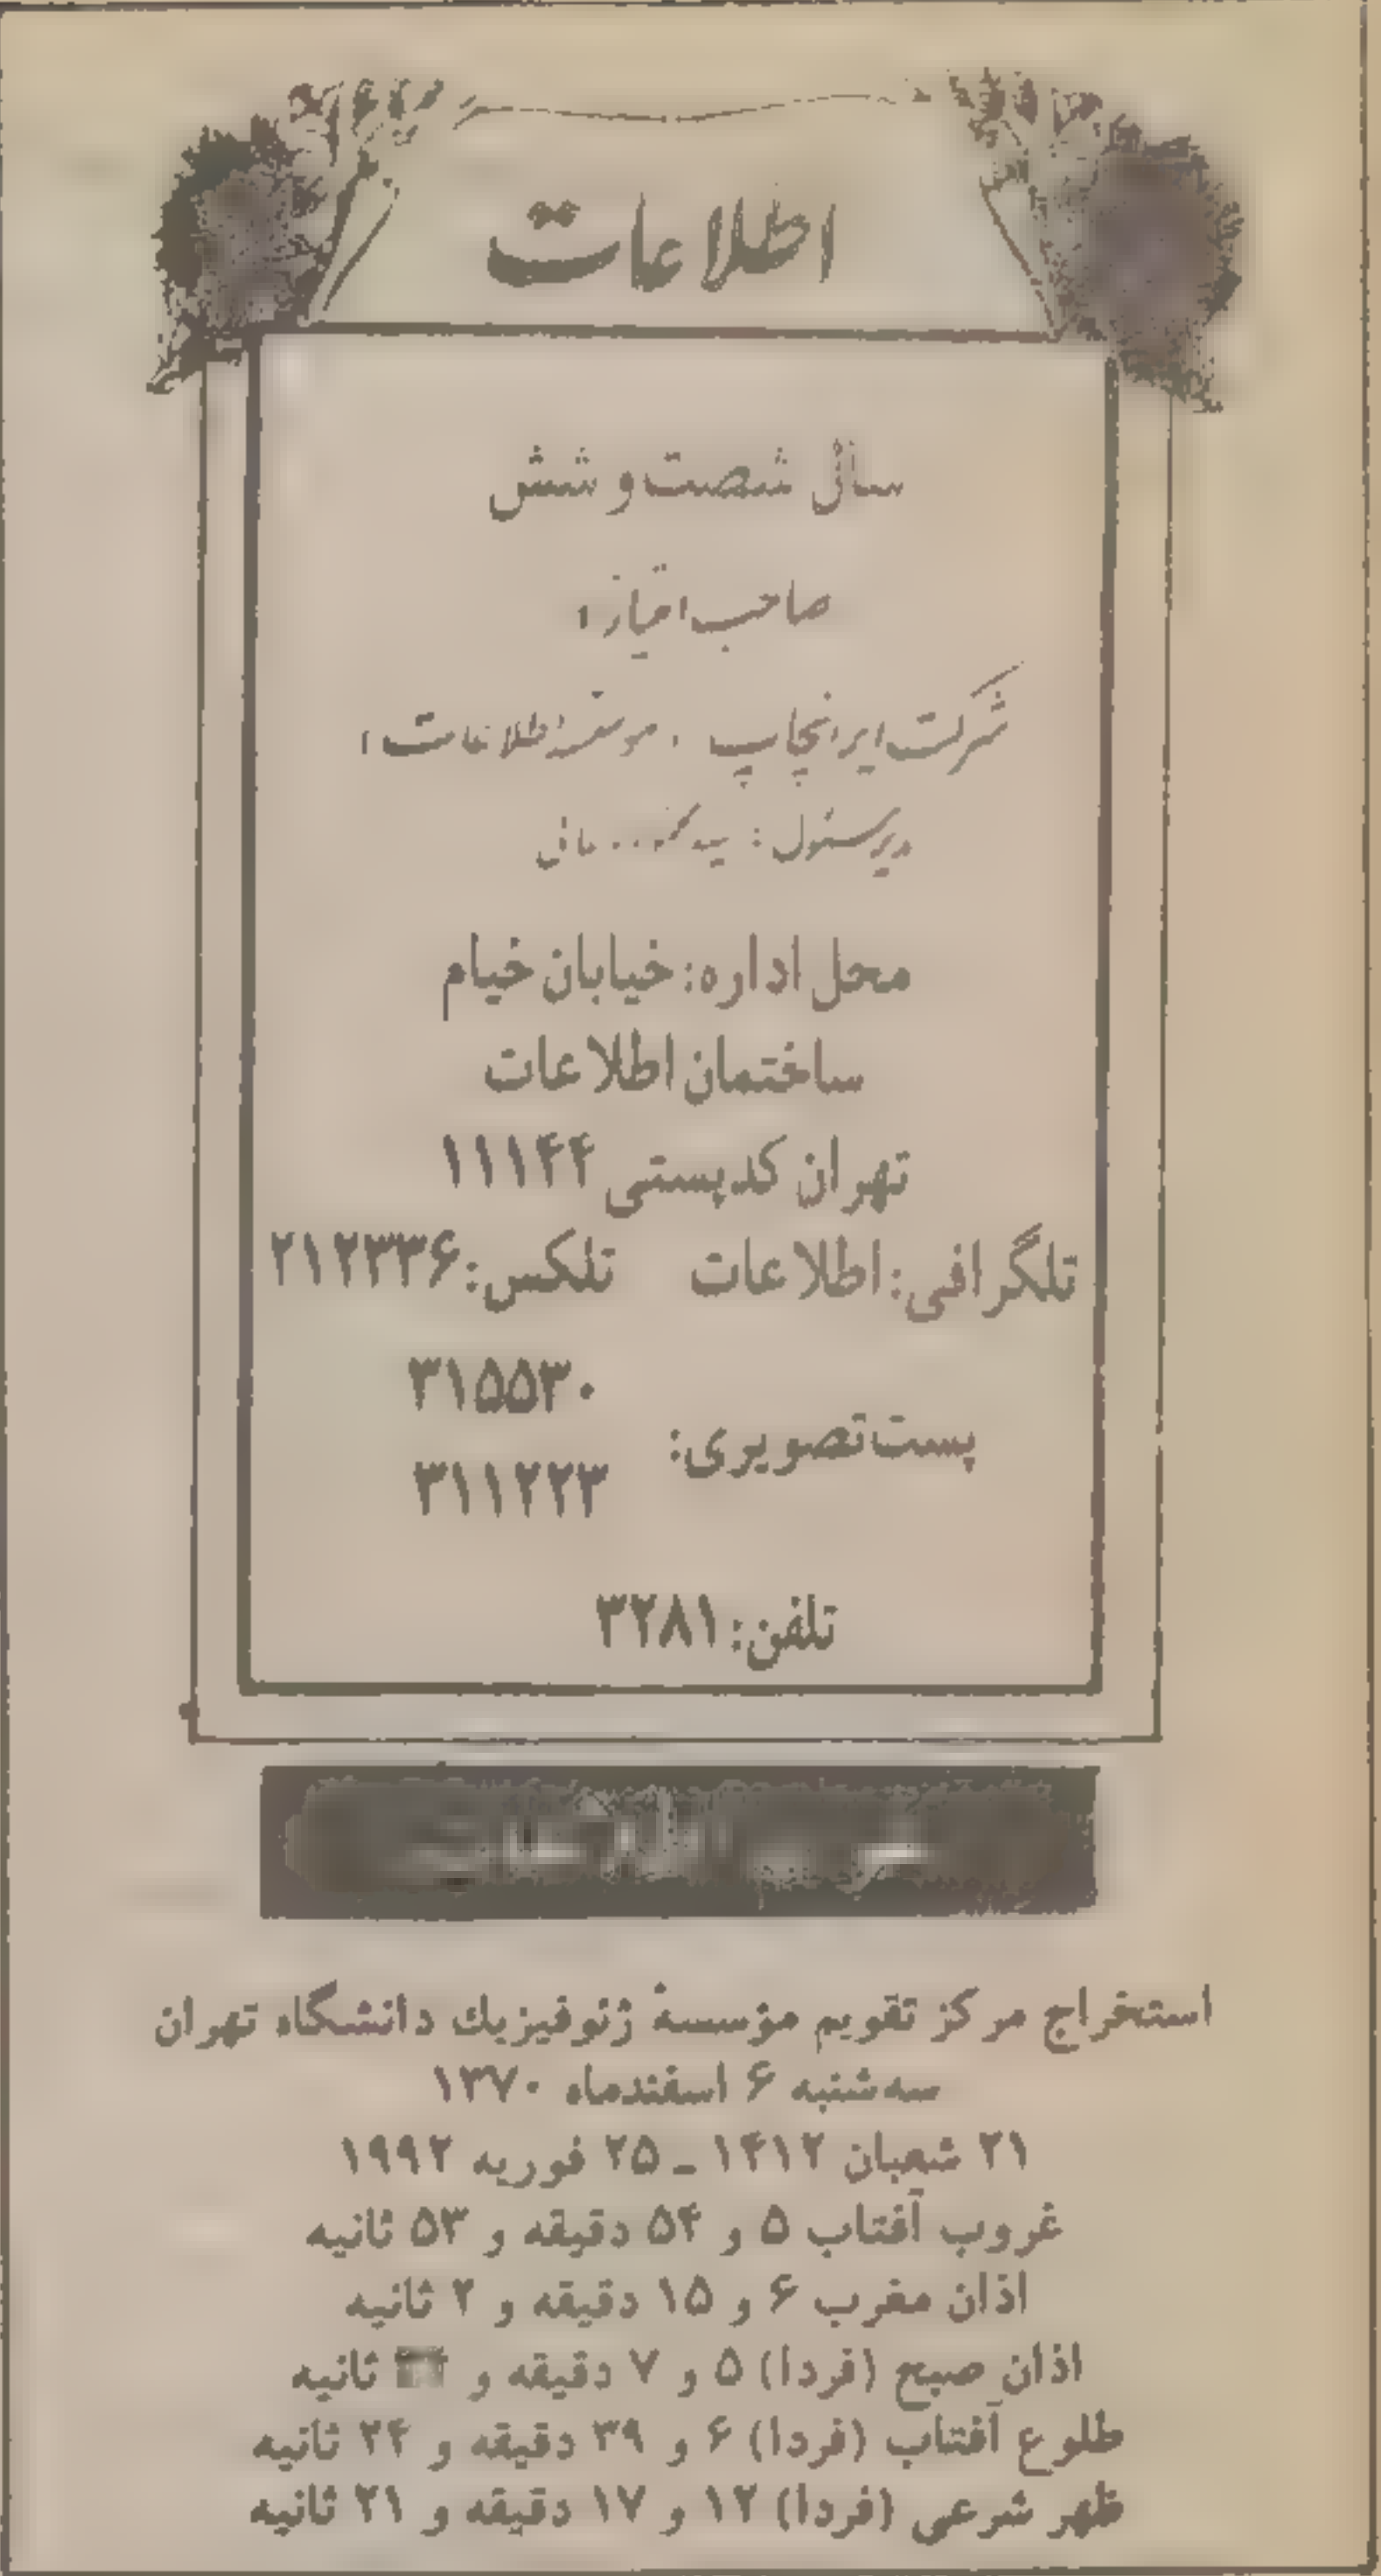 اطلاعات
سال شصت و شش
صاحب امتیاز:
شرکت ایرانچاپ «موسسه اطلاعات»
مدیر مسئول: سید
محل اداره: خیابان خیام
ساختمان اطلاعات
تهران کدپستی ۱۱۱۴۴
تلگرافی: اطلاعات تلکس: ۲۱۲۳۳۶
پست تصویری: ۳۱۵۵۳۰
۳۱۱۲۲۳
تلفن: ۳۲۸۱
استخراج مرکز تقویم مؤسسهٔ ژئوفیزیك دانشگاه تهران
سه‌شنبه ۶ اسفندماه ۱۳۷۰
۲۱ شعبان ۱۴۱۲ ـ ۲۵ فوریه ۱۹۹۲
غروب آفتاب ۵ و ۵۴ دقیقه و ۵۳ ثانیه
اذان مغرب ۶ و ۱۵ دقیقه و ۲ ثانیه
اذان صبح (فردا) ۵ و ۷ دقیقه و ثانیه
طلوع آفتاب (فردا) ۶ و ۳۹ دقیقه و ۲۴ ثانیه
ظهر شرعی (فردا) ۱۲ و ۱۷ دقیقه و ۲۱ ثانیه